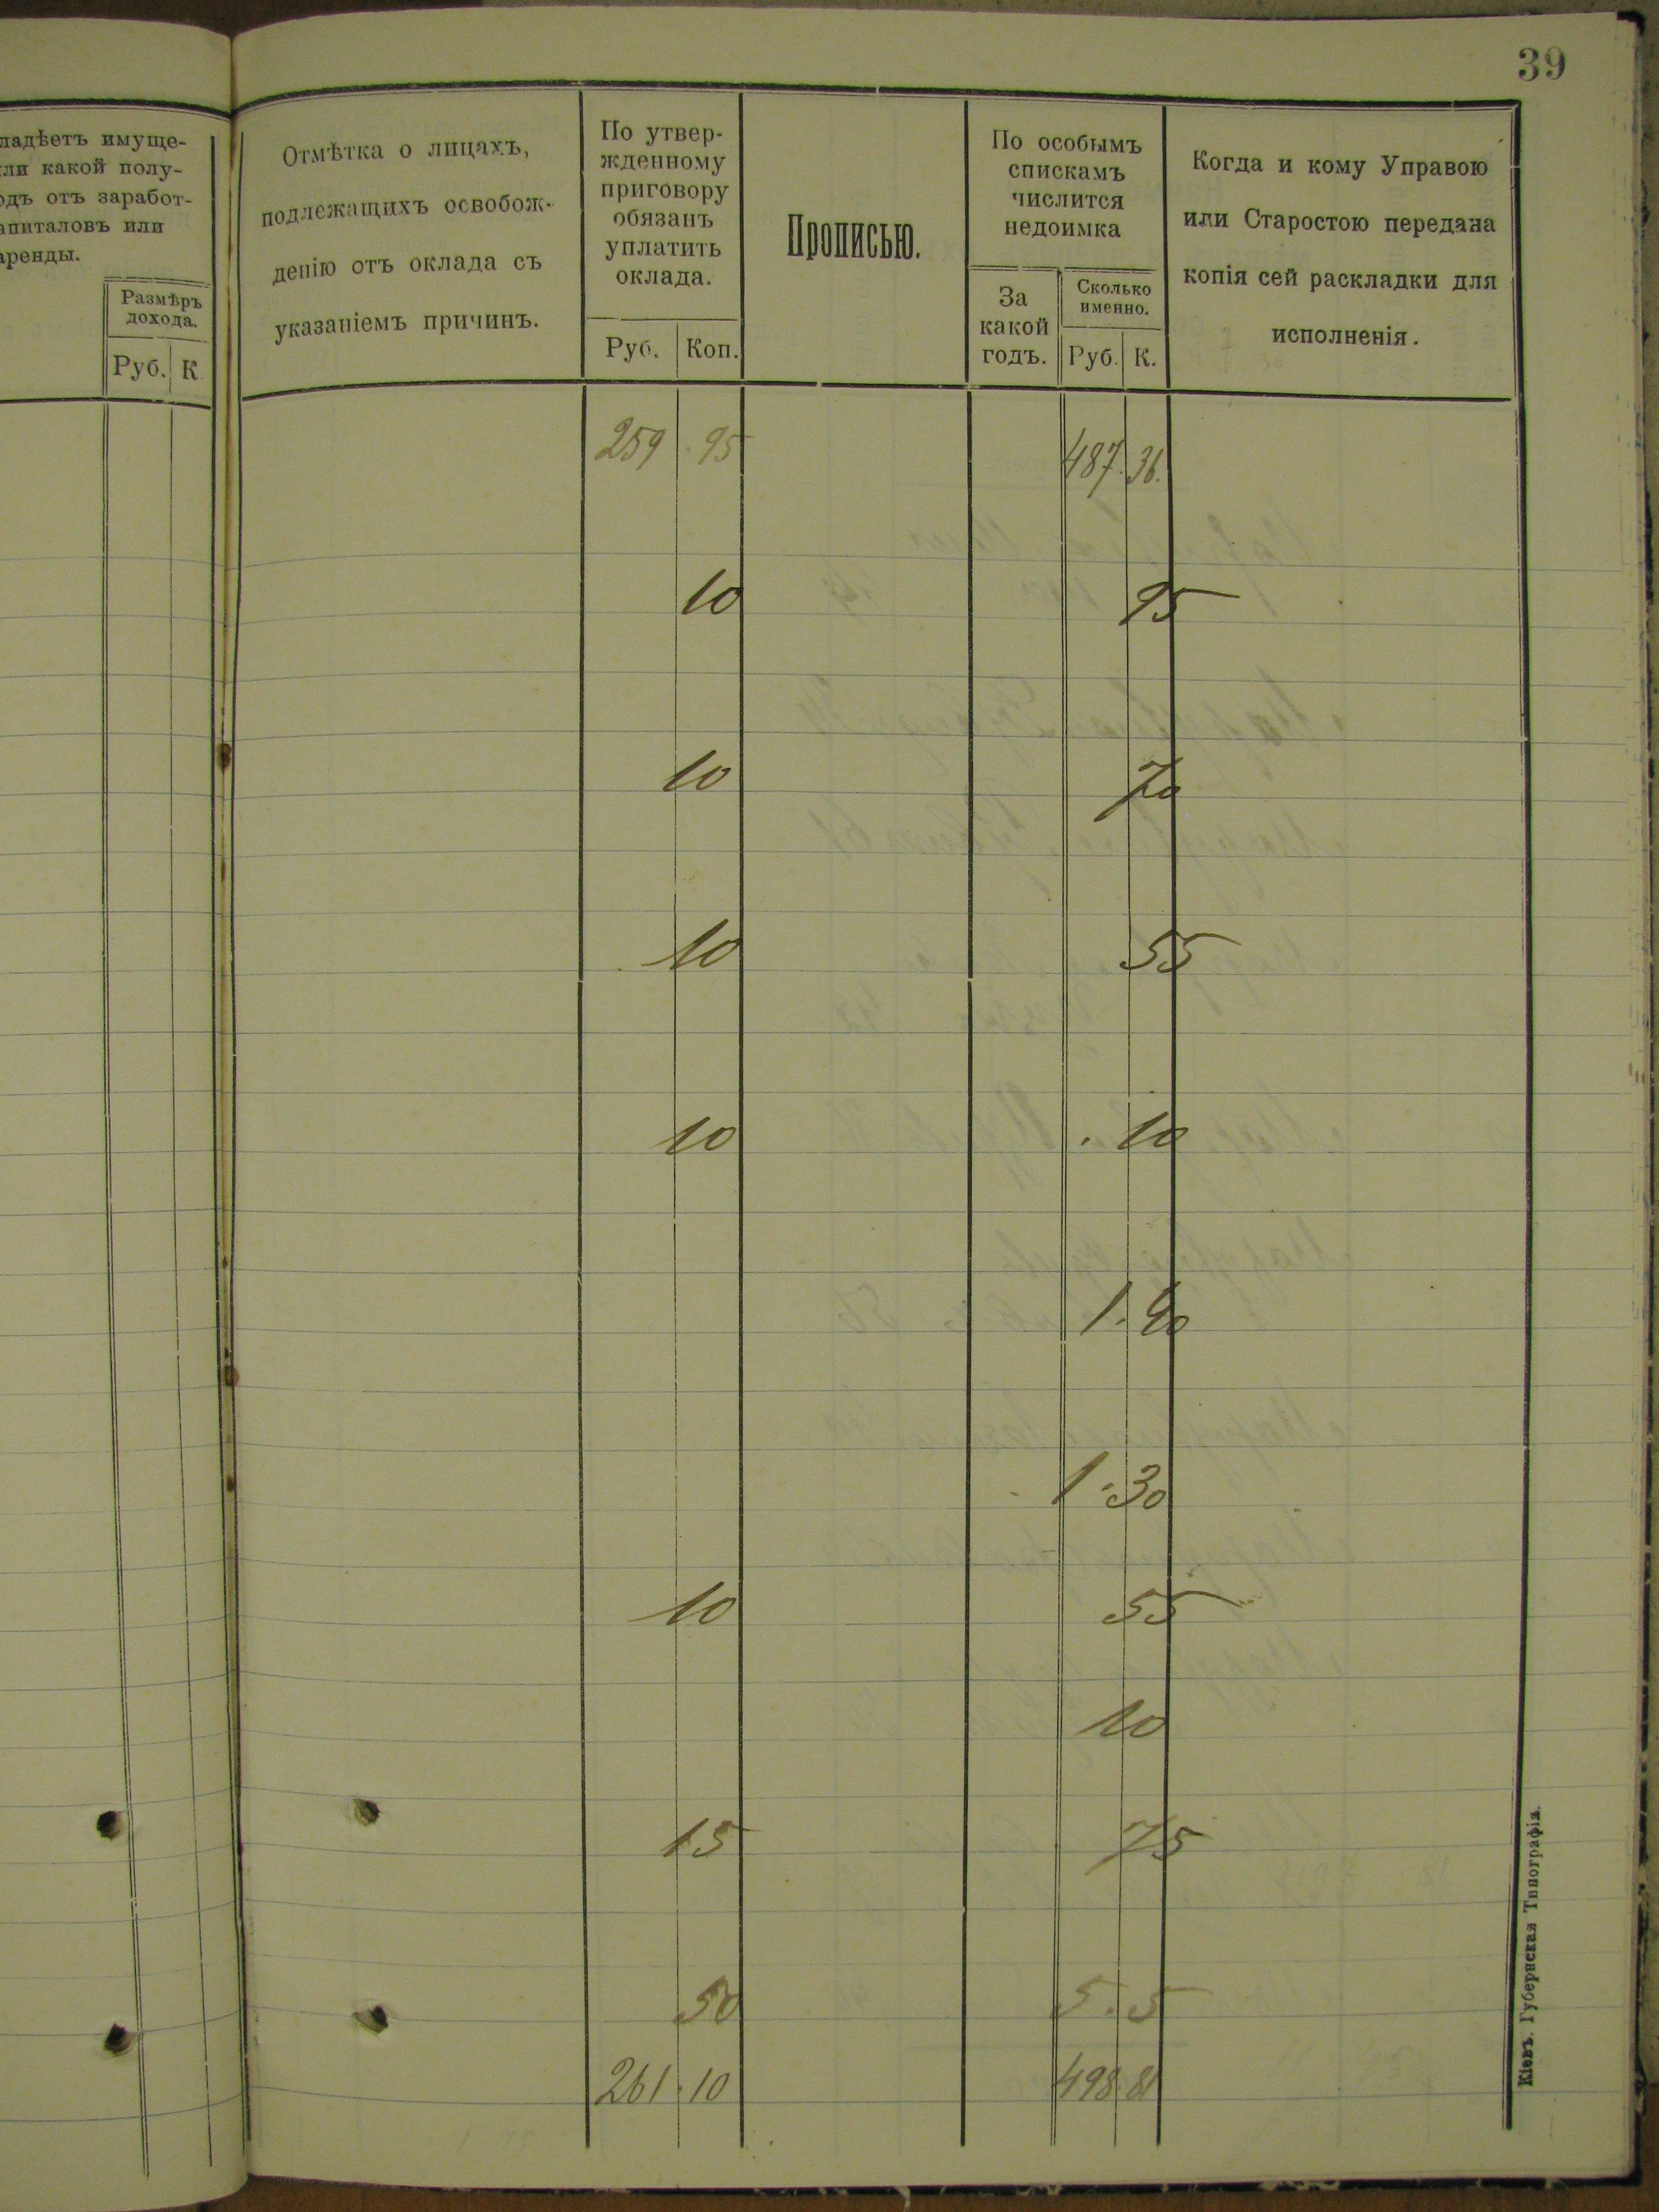 39
ладѣетъ имуще-
ли какой полу-
одъ отъ заработ-
апиталовъ или
аренды.
Размѣръ
дохода.
Руб. К
Отмѣтка о лицахъ,
подлежащихъ освобож-
денію отъ оклада съ
указаніемъ причинъ.
По утвер-
жденному
приговору
обязанъ
уплатить
оклада.
Руб. Коп.
Прописью.
По особымъ
спискамъ
числится
недоимка
За
какой
годъ.
Сколько
именно.
Руб. К.
Когда и кому Управою
или Старостою передана
копія сей раскладки для
исполненія.
259 95 487. 36.
10 95
10 70
10 55
10 10
1. 40
1. 30
10 55
10
15 75
50 5. 5
261. 10 498. 81
Кіевъ. Губернская Типографія.